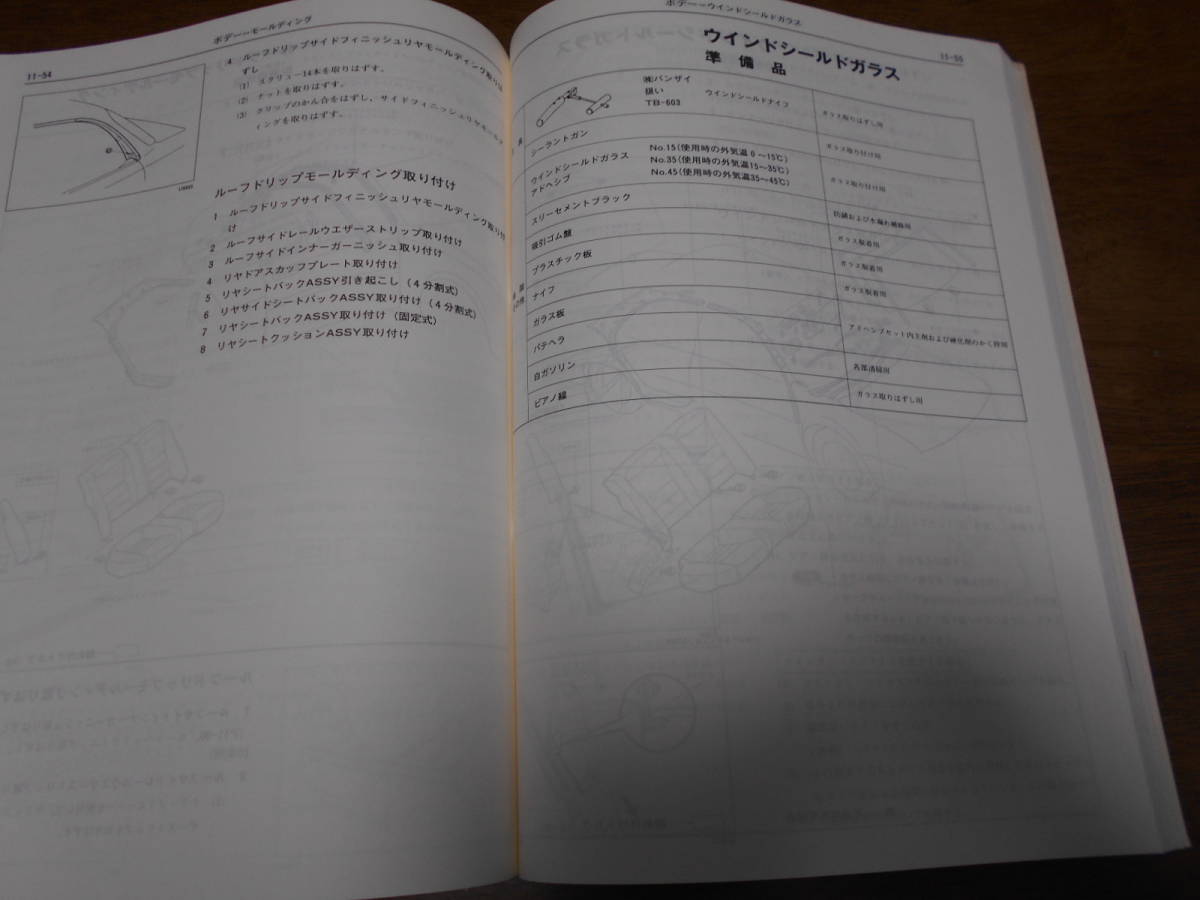 11-54
ボデー－モールディング
4 ルーフドリップサイドフィニッシュリヤモールディング取りは
ずし
(1) スクリュー14本を取りはずす。
(2) ナットを取りはずす。
(3) クリップのかん合をはずし，サイドフィニッシュリヤモールデ
ィングを取りはずす。
ルーフドリップモールディング取り付け
1 ルーフドリップサイドフィニッシュリヤモールディング取り付
け
2 ルーフサイドレールウエザーストリップ取り付け
3 ルーフサイドインナーガーニッシュ取り付け
4 リヤドアスカッフプレート取り付け
5 リヤシートバックASSY引き起こし（4分割式）
6 リヤサイドシートバックASSY取り付け（4分割式）
7 リヤシートバックASSY取り付け（固定式）
8 リヤシートクッションASSY取り付け
ボデー－ウインドシールドガラス
11-55
ウインドシールドガラス
準備品
㈱バンザイ
扱い
TB-603
ウインドシールドナイフ
ガラス取りはずし用
シーラントガン
ガラス取り付け用
ウインドシールドガラス
アドヘシブ
No.15（使用時の外気温0～15℃）
No.35（使用時の外気温15～35℃）
No.45（使用時の外気温35～45℃）
ガラス取り付け用
スリーセメントブラック
防錆および水漏れ補修用
吸引ゴム盤
ガラス脱着用
プラスチック板
ガラス脱着用
ナイフ
ガラス脱着用
ガラス板
パテヘラ
アドヘシブセット内主剤および硬化剤のかく拌用
白ガソリン
各部清掃用
ピアノ線
ガラス取りはずし用